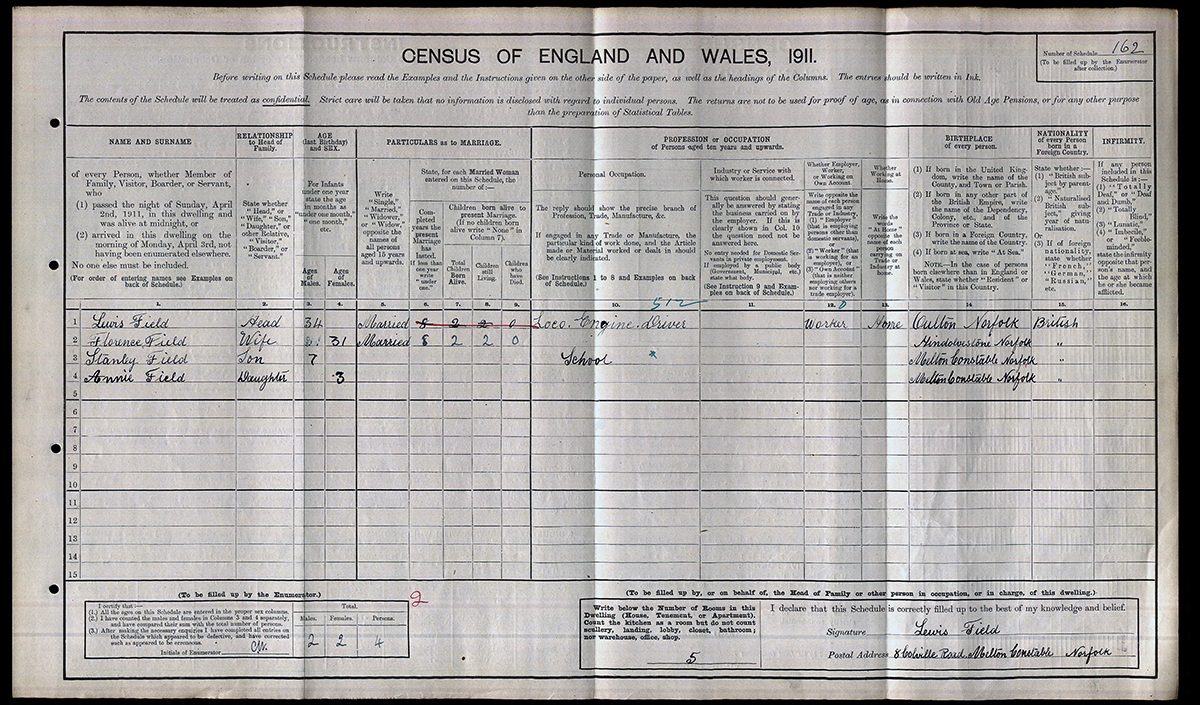 CENSUS OF ENGLAND AND WALES, 1911.
Number of Schedule 162
(To be filled up by the Enumerator
after collection.)
Before writing on this Schedule please read the Examples and the Instructions given on the other side of the paper, as well as the headings of the Columns. The entries should be written in Ink.
The contents of the Schedule will be treated as confidential. Strict care will be taken that no information is disclosed with regard to individual persons. The returns are not to be used for proof of age, as in connection with Old Age Pensions, or for any other purpose
than the preparation of Statistical Tables.
NAME AND SURNAME
of every Person, whether Member of
Family, Visitor, Boarder, or Servant,
who
(1) passed the night of Sunday, April
2nd, 1911, in this dwelling and
was alive at midnight, or
(2) arrived in this dwelling on the
morning of Monday, April 3rd, not
having been enumerated elsewhere.
No one else must be included.
(For order of entering names see Examples on
back of Schedule.)
RELATIONSHIP
to Head of
Family.
State whether
"Head," or
"Wife," "Son,"
"Daughter," or
other Relative,
"Visitor,"
"Boarder," or
"Servant."
AGE
(last Birthday)
and SEX.
For Infants
under one year
state the age
in months as
"under one month,"
"one month,"
etc.
Ages
of
Males.
Ages
of
Females.
PARTICULARS as to MARRIAGE.
Write
"Single,"
"Married,"
"Widower,"
or "Widow,"
opposite the
names of
all persons
aged 15 years
and upwards.
State, for each Married Woman
entered on this Schedule, the
number of:—
Com-
pleted
years the
present
Marriage
has
lasted.
If less than
one year
write
"under
one."
Children born alive to
present Marriage.
(If no children born
alive write "None" in
Column 7).
Total
Children
Born
Alive.
Children
still
Living.
Children
who
have
Died.
PROFESSION or OCCUPATION
of Persons aged ten years and upwards.
Personal Occupation.
The reply should show the precise branch of
Profession, Trade, Manufacture, &c.
If engaged in any Trade or Manufacture, the
particular kind of work done, and the Article
made or Material worked or dealt in should
be clearly indicated.
(See Instructions 1 to 8 and Examples on back
of Schedule.)
Industry or Service with
which worker is connected.
This question should gener-
ally be answered by stating
the business carried on by
the employer. If this is
clearly shown in Col. 10
the question need not be
answered here.
No entry needed for Domestic Ser-
vants in private employment.
If employed by a public body
(Government, Municipal, etc.)
state what body.
(See Instruction 9 and Exam-
ples on back of Schedule.)
Whether Employer,
Worker,
or Working on
Own Account.
Write opposite the
name of each person
engaged in any
Trade or Industry,
(1) "Employer"
(that is employing
persons other than
domestic servants),
or
(2) "Worker" (that
is working for an
employer), or
(3) "Own Account"
(that is neither
employing others
nor working for a
trade employer).
Whether
Working at
Home.
Write the
words
"At Home"
opposite the
name of each
person
carrying on
Trade or
Industry at
home.
BIRTHPLACE
of every person.
(1) If born in the United King-
dom, write the name of the
County, and Town or Parish.
(2) If born in any other part of
the British Empire, write
the name of the Dependency,
Colony, etc., and of the
Province or State.
(3) If born in a Foreign Country,
write the name of the Country.
(4) If born at sea, write "At Sea."
NOTE.—In the case of persons
born elsewhere than in England or
Wales, state whether "Resident" or
"Visitor" in this Country.
NATIONALITY
of every Person
born in a
Foreign Country.
State whether:—
(1) "British sub-
ject by parent-
age."
(2) "Naturalised
British sub-
ject," giving
year of natu-
ralisation.
Or
(3) If of foreign
nationality,
state whether
"French,"
"German,"
"Russian,"
etc.
INFIRMITY.
If any person
included in this
Schedule is:—
(1) "Totally
Deaf," or "Deaf
and Dumb,"
(2) "Totally
Blind,"
(3) "Lunatic,"
(4) "Imbecile,"
or "Feeble-
minded,"
state the infirmity
opposite that per-
son's name, and
the age at which
he or she became
afflicted.
1. 2. 3. 4. 5. 6. 7. 8. 9. 10. 512 11. 12. 13. 14. 15. 16.
1 Lewis Field Head 34 Married 8 2 2 0 Loco. Engine. Driver Worker Home Oulton Norfolk British
2 Florence Field Wife 31 Married 8 2 2 0 Hindolvestone Norfolk "
3 Stanley Field Son 7 School Melton Constable Norfolk "
4 Annie Field Daughter 3 Melton Constable Norfolk "
5
6
7
8
9
10
11
12
13
14
15
(To be filled up by the Enumerator.)
I certify that:—
(1.) All the ages on this Schedule are entered in the proper sex columns.
(2.) I have counted the males and females in Columns 3 and 4 separately,
and have compared their sum with the total number of persons.
(3.) After making the necessary enquiries I have completed all entries on
the Schedule which appeared to be defective, and have corrected
such as appeared to be erroneous.
Initials of Enumerator
Total.
Males. Females. Persons.
2 2 4
2
(To be filled up by, or on behalf of, the Head of Family or other person in occupation, or in charge, of this dwelling.)
Write below the Number of Rooms in this
Dwelling (House, Tenement, or Apartment).
Count the kitchen as a room but do not count
scullery, landing, lobby, closet, bathroom;
nor warehouse, office, shop.
5
I declare that this Schedule is correctly filled up to the best of my knowledge and belief.
Signature Lewis Field
Postal Address 8 Colville Road, Melton Constable Norfolk